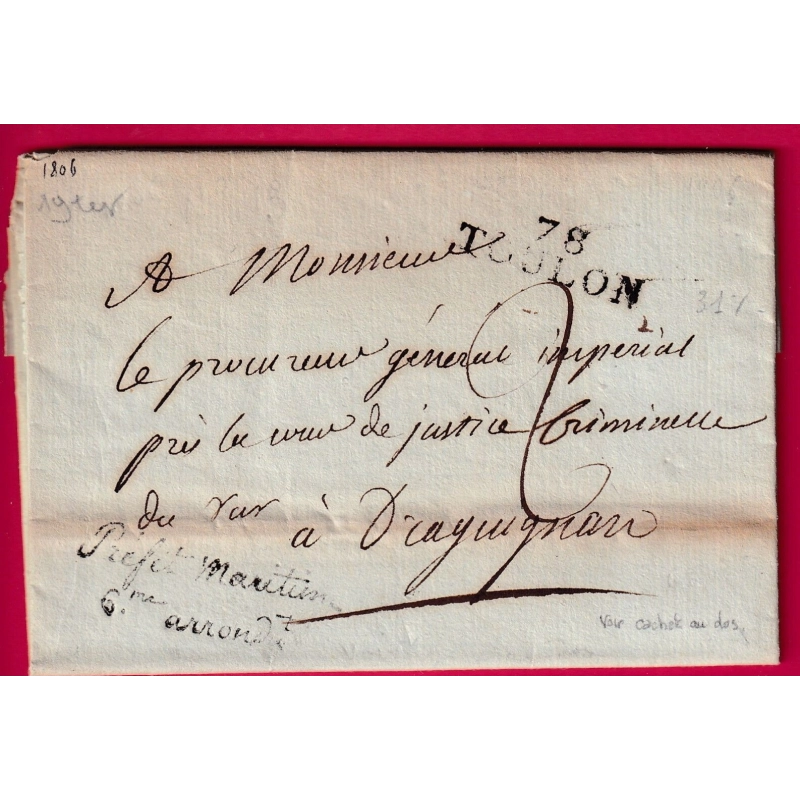 1806
78
TOULON
A Monsieur
317
le procureur général impérial
près la cour de justice Criminelle
du var
à Draguignan
2
Préfet Maritim
6.me arrond.t
voir cachet au dos